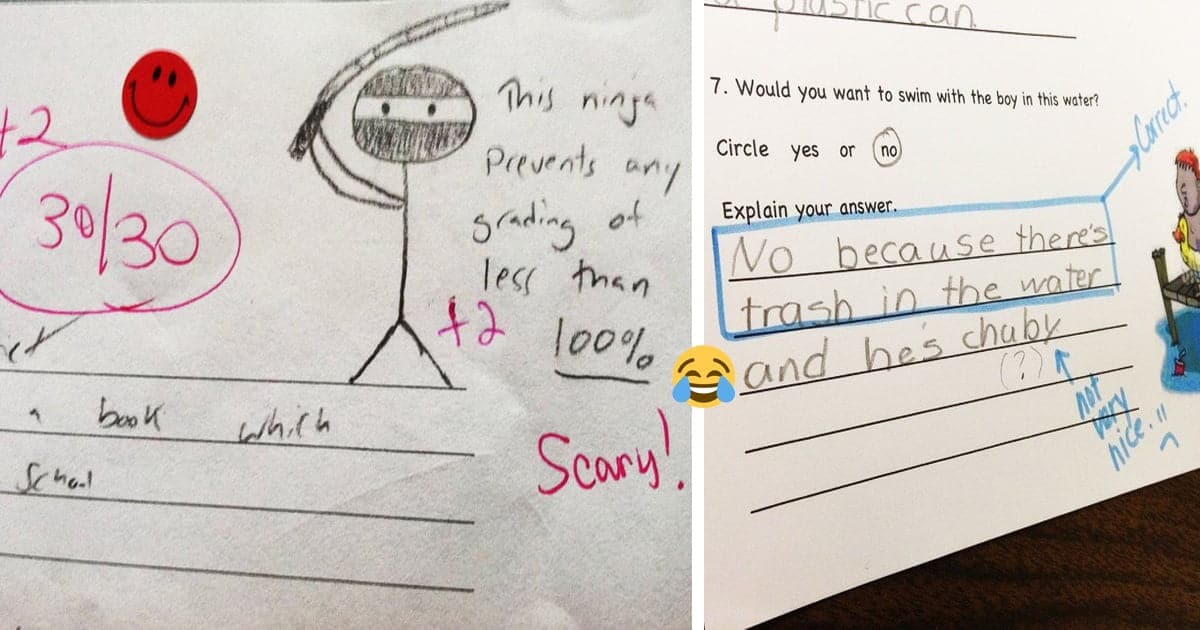 +2
30/30
This ninja
Prevents any
grading of
less than
100%
+2
book which
School
Scary!
plastic can
7. Would you want to swim with the boy in this water?
Circle yes or no
Explain your answer.
No because there's
trash in the water
and he's chuby
(?)
Correct.
not
very
nice.!!